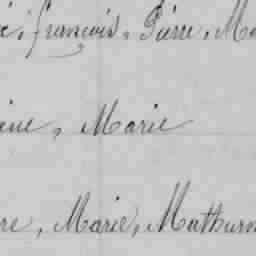 françois, Pierre, Ma
ine, Marie
re, Marie, Mathurin